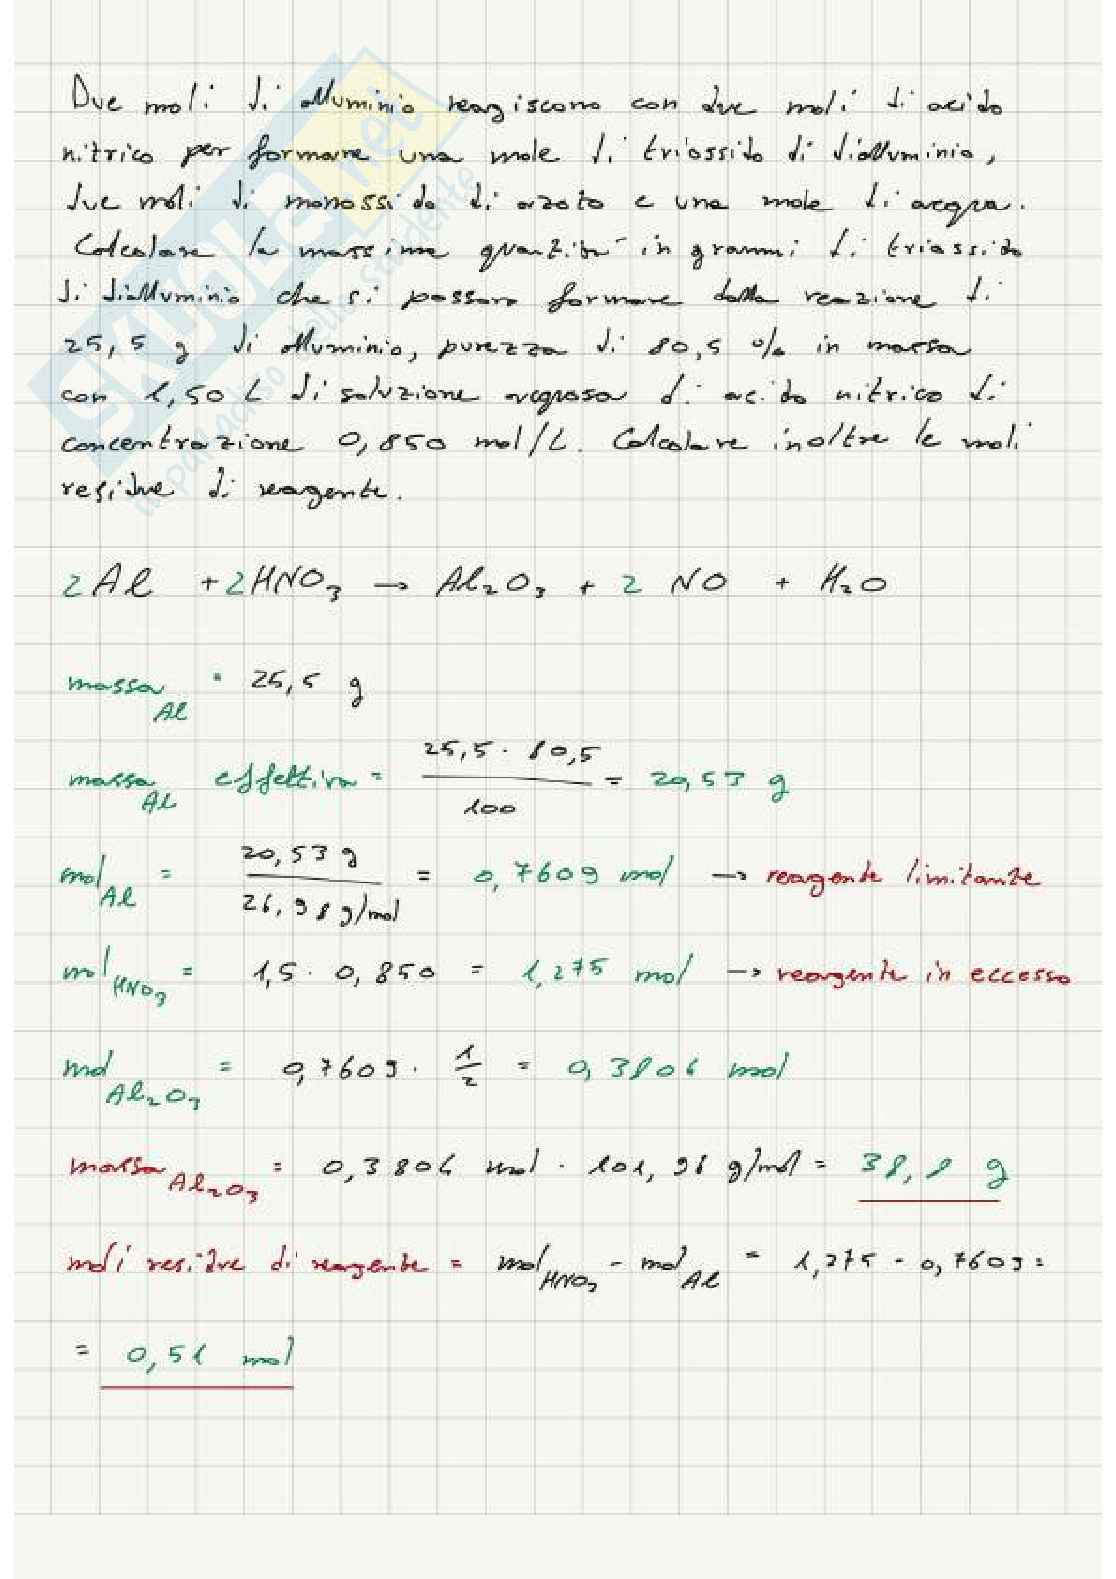 Due moli di alluminio reagiscono con due moli di acido
nitrico per formare una mole di triossido di dialluminio,
due moli di monossido di azoto e una mole di acqua.
Calcolare la massima quantità in grammi di triossido
di dialluminio che si possono formare dalla reazione di
25,5 g di alluminio, purezza di 80,5 % in massa
con 1,50 L di soluzione acquosa di acido nitrico di
concentrazione 0,850 mol/L. Calcolare inoltre le moli
residue di reagente.
2Al + 2HNO₃ → Al₂O₃ + 2 NO + H₂O
massa Al = 25,5 g
massa Al effettiva = 25,5 · 80,5 / 100 = 20,53 g
mol Al = 20,53 g / 26,98 g/mol = 0,7609 mol → reagente limitante
mol HNO₃ = 1,5 · 0,850 = 1,275 mol → reagente in eccesso
mol Al₂O₃ = 0,7609 · 1/2 = 0,3804 mol
massa Al₂O₃ = 0,3804 mol · 101,96 g/mol = 38,8 g
moli residue di reagente = mol HNO₃ - mol Al = 1,275 - 0,7609 =
= 0,51 mol
skuola.net
il paradiso dello studente